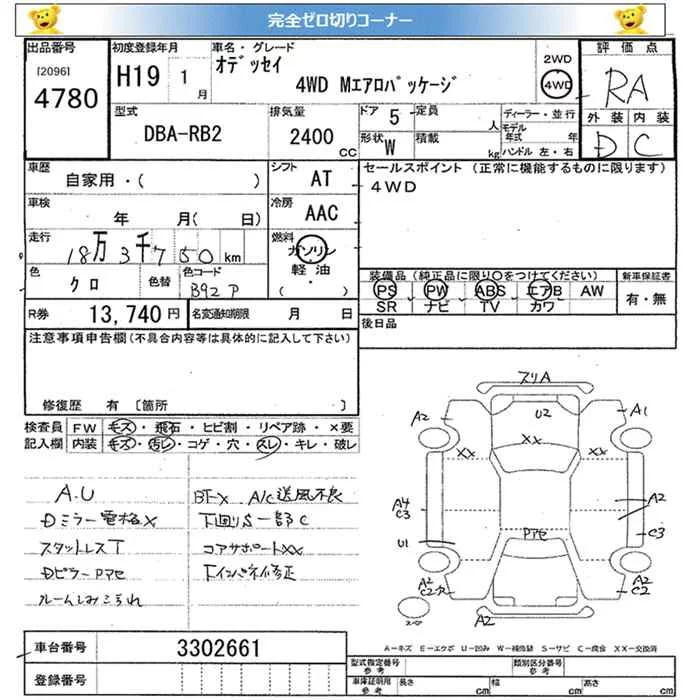 完全ゼロ切りコーナー
出品番号
[2096]
4780
初度登録年月
H19 1月
車名・グレード
オデッセイ
4WD Mエアロパッケージ
2WD
4WD
評価点
RA
外装 内装
D C
型式
DBA-RB2
排気量
2400 CC
ドア 5
定員 人
形状 W
積載 kg
ディーラー・並行
モデル年式 年
ハンドル 左・右
車歴
自家用・( )
シフト
AT
セールスポイント (正常に機能するものに限ります)
4WD
車検
年 月( 日)
冷房
AAC
走行
18万3千750km
燃料
ガソリン
軽油
( )
色
クロ
色替
色コード
B92P
装備品(純正品に限り○をつけてください)
PS PW ABS エアB AW
SR ナビ TV カワ
新車保証書
有・無
R券 13,740円
名変通知期限 月 日
後日品
注意事項申告欄(不具合内容等は具体的に記入して下さい)
修復歴 有 [箇所 ]
検査員記入欄
FW キズ・飛石・ヒビ割・リペア跡・×要
内装 キズ・汚レ・コゲ・穴・スレ・キレ・破レ
A.U
Dミラー電格X
スタットレスT
DピラーPアセ
ルームしみこられ
BT-X A/C送風不良
下回りS一部C
コアサポートXX
Fインパネイ修正
スリA
A2
U2
A1
XX
XX
XX
A4
C3
A2
C3
U1
Pアセ
A2
C2
A2
A2
C2
A-キズ E-エクボ U-凹み W-補修跡 S-サビ C-腐食 XX-交換済
車台番号 3302661
登録番号
型式指定番号 参考
類別区分番号 参考
車庫証明用 参考
長さ cm
幅 cm
高さ cm